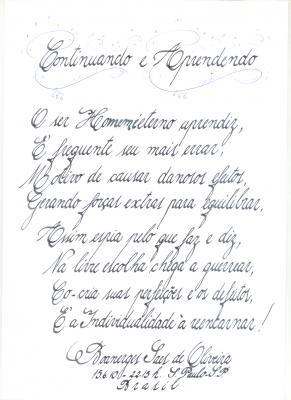 Continuando e Aprendendo
O ser Homem eterno aprendiz,
É frequente seu mais errar,
Motivo de causar danosos efeitos,
Gerando forças extras para equilibrar,
Assim espia pelo que faz e diz,
Na livre escolha chega a guerrear,
Co-cria suas perfeições e os defeitos,
É a Individualidade à reencarnar!
Boanerges Saes de Oliveira
13.6.10 - 22:13 h. S. Paulo - S.P.
Brasil